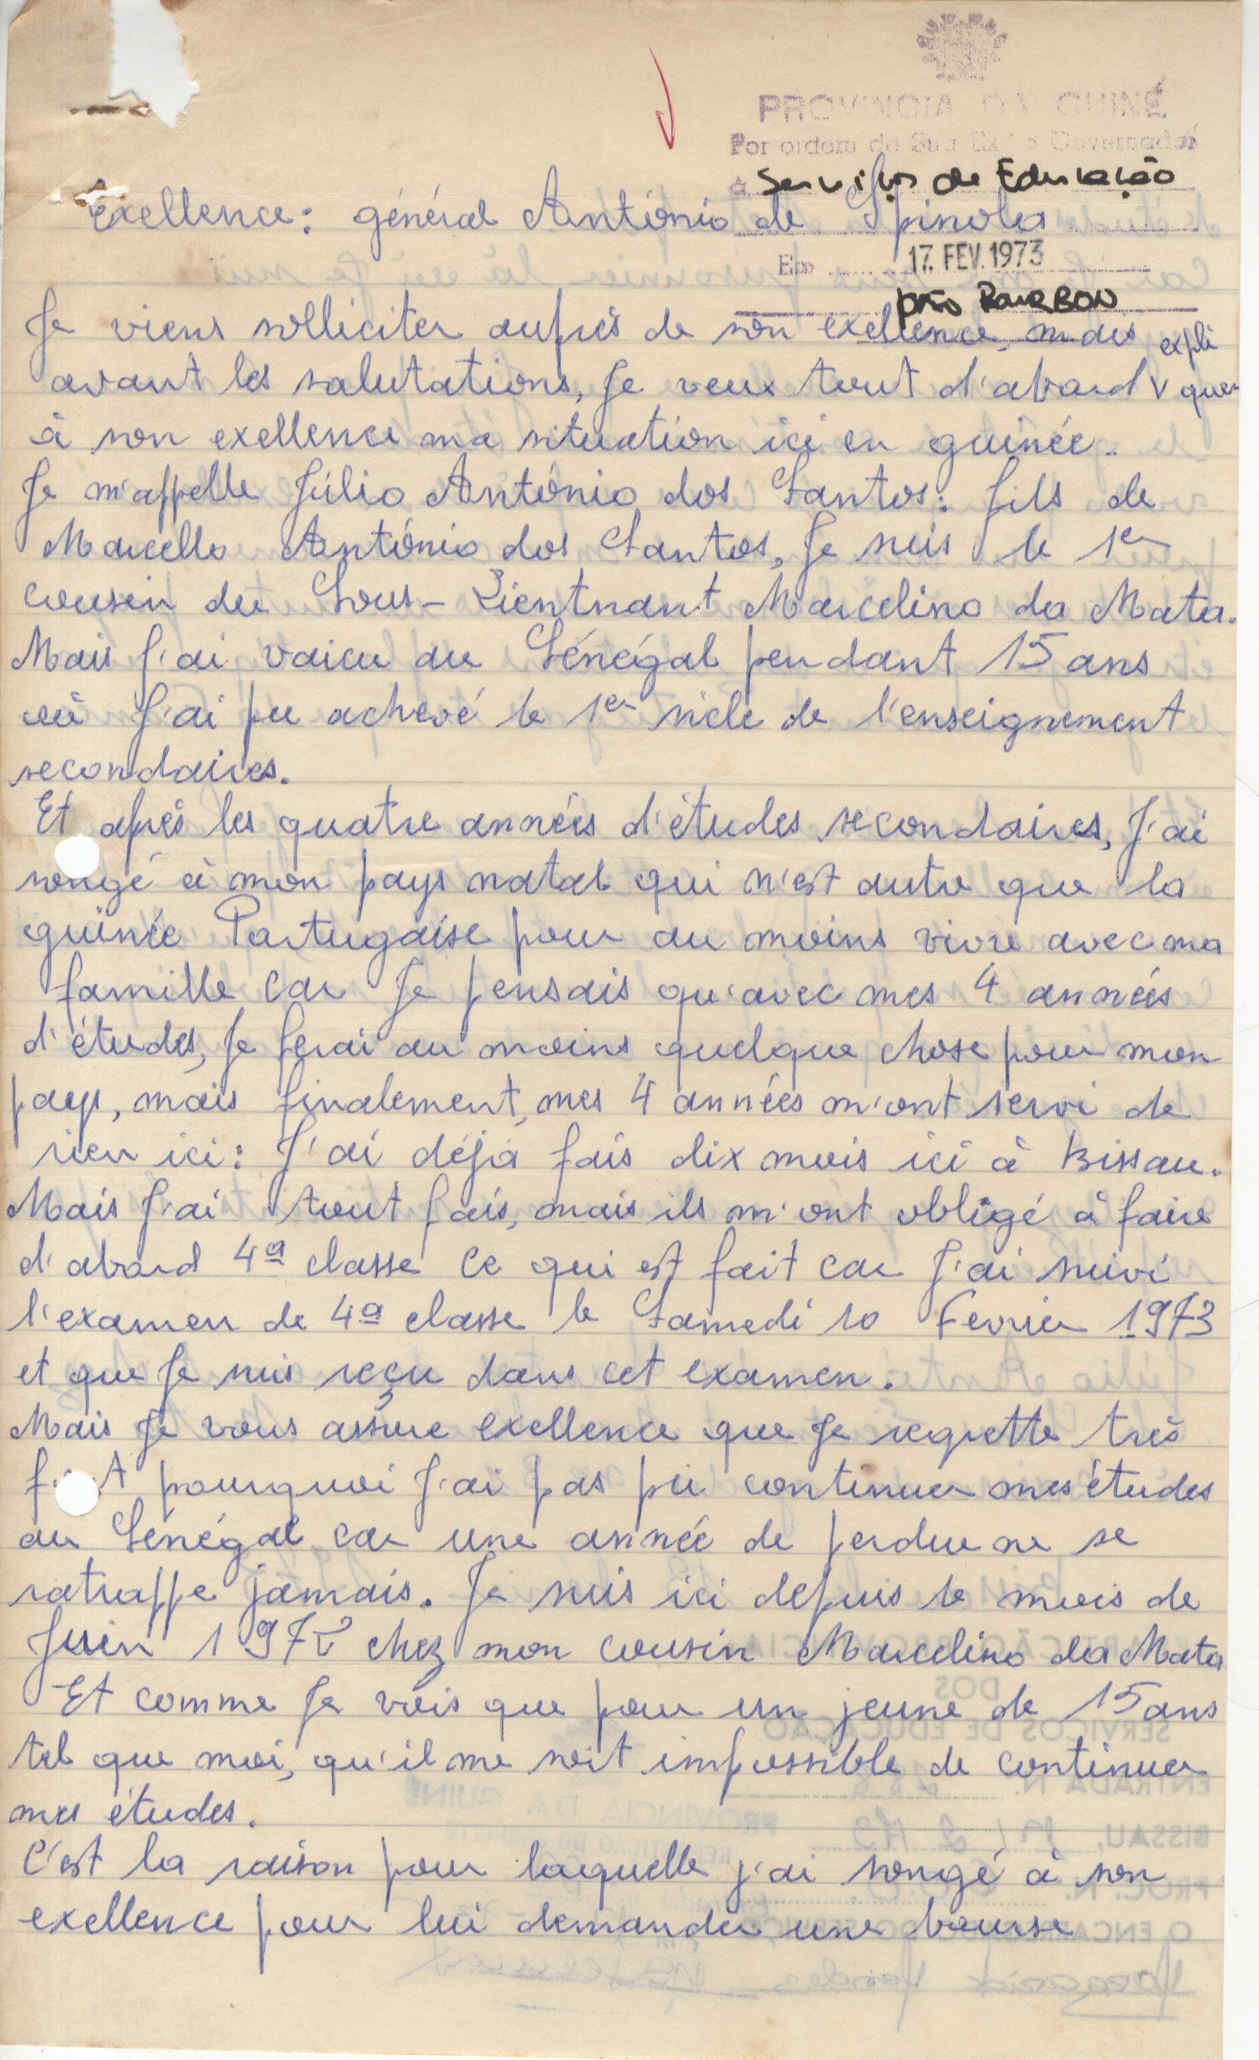 PROVINCIA DA GUINÉ
Por ordem de Sua Exª o Governador
à Serviços de Educação
Exellence: général António de Spinola
Em 17. FEV. 1973
João BOURBON
Je viens solliciter auprès de son exellence, mais
avant les salutations, Je veux tout d'abord v expliquer
à son exellence ma situation ici en guinée.
Je m'appelle Júlio António dos Santos: fils de
Marcello António dos Santos, Je suis le 1er
cousin du Sous-Lientnant Marcelino da Mata.
Mais J'ai vaicu au Sénégal pendant 15 ans
où J'ai pu achevé le 1er sicle de l'enseignement
secondaires.
Et après les quatre années d'études secondaires, J'ai
songé à mon pays natal qui n'est autre que la
guinée Portugaise pour au moins vivre avec ma
famille car Je pensais qu'avec mes 4 années
d'études, Je ferai au moins quelque chose pour mon
pays, mais finalement, mes 4 années m'ont servi de
rien ici: J'ai déjà fais dix mois ici à Bissau.
Mais J'ai tout fais, mais ils m'ont obligé à faire
d'abord 4ª classe ce qui est fait car J'ai suivi
l'examen de 4ª classe le Samedi 10 Fevrier 1973
et que Je suis reçu dans cet examen.
Mais Je vous assure exellence que Je regrette très
f t pourquoi J'ai pas pu continuer mes études
au Sénégal car une année de perdue ne se
ratrappe jamais. Je suis ici depuis le mois de
Juin 1972 chez mon cousin Marcelino da Mata
Et comme Je vois que pour un jeune de 15 ans
tel que moi, qu'il me soit impossible de continuer
mes études.
C'est la raison pour laquelle j'ai songé à son
exellence pour lui demander une bourse